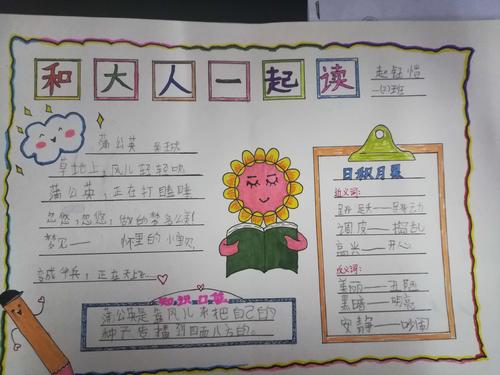 和大人一起读
赵钰惜
一(2)班
蒲公英
草地上,风儿轻轻吹
蒲公英,正在打瞌睡
忽悠,忽悠,做的梦多么美
梦见一怀里的小
变成伞兵,正在天上飞
知识口袋
蒲公英是靠风儿来把自己的
种子传播到四面八方的。
日积月累
近义词:
调皮——捣乱
高兴——开心
反义词:
美丽——丑陋
黑暗——明亮
安静——吵闹